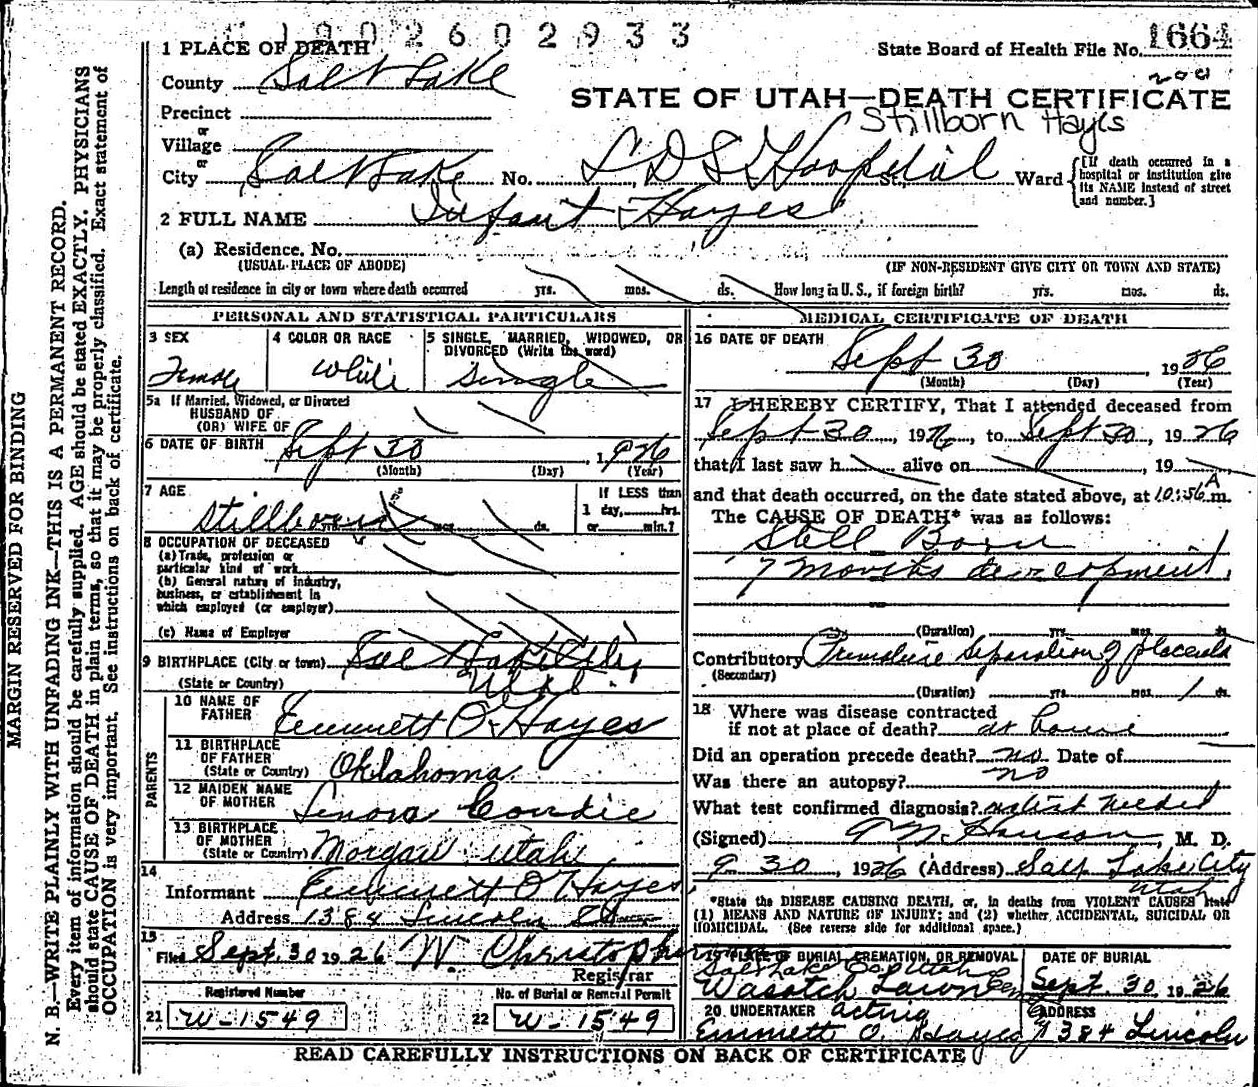 1902602933
1 PLACE OF DEATH
State Board of Health File No. 1664
County Salt Lake
200
STATE OF UTAH—DEATH CERTIFICATE
Precinct
Stillborn Hayes
or
Village
or
City Salt Lake No. L D S Hospital St., Ward
[If death occurred in a hospital or institution give its NAME instead of street and number.]
2 FULL NAME Infant Hayes
(a) Residence. No.
(USUAL PLACE OF ABODE) (IF NON-RESIDENT GIVE CITY OR TOWN AND STATE)
Length of residence in city or town where death occurred yrs. mos. ds. How long in U. S., if foreign birth? yrs. mos. ds.
PERSONAL AND STATISTICAL PARTICULARS
3 SEX
Female
4 COLOR OR RACE
White
5 SINGLE, MARRIED, WIDOWED, OR
DIVORCED (Write the word)
Single
5a If Married, Widowed, or Divorced
HUSBAND OF
(OR) WIFE OF
6 DATE OF BIRTH Sept 30 1926
(Month) (Day) (Year)
7 AGE
Stillborn
yrs. mos. ds.
If LESS than
1 day, hrs.
or min.?
8 OCCUPATION OF DECEASED
(a) Trade, profession or
particular kind of work
(b) General nature of industry,
business, or establishment in
which employed (or employer)
(c) Name of Employer
9 BIRTHPLACE (City or town) Salt Lake City
(State or Country) Utah
PARENTS
10 NAME OF
FATHER Emmett O. Hayes
11 BIRTHPLACE
OF FATHER
(State or Country) Oklahoma
12 MAIDEN NAME
OF MOTHER Lenora Condie
13 BIRTHPLACE
OF MOTHER
(State or Country) Morgan Utah
14
Informant Emmett O. Hayes
Address 1384 Lincoln St
15
Filed Sept. 30 1926 W. Christopherson
Registrar
Registered Number
21 W-1549
No. of Burial or Removal Permit
22 W-1549
MEDICAL CERTIFICATE OF DEATH
16 DATE OF DEATH
Sept 30, 1926
(Month) (Day) (Year)
17 I HEREBY CERTIFY, That I attended deceased from
Sept 30, 1926, to Sept 30, 1926
that I last saw h alive on , 19
and that death occurred, on the date stated above, at 10:56 A m.
The CAUSE OF DEATH* was as follows:
Still Born
7 months development.
(Duration) yrs. mos. ds.
Contributory Premature Separation of placenta
(Secondary)
(Duration) yrs. mos. 1 ds.
18 Where was disease contracted
if not at place of death? at home
Did an operation precede death? no Date of
Was there an autopsy? no
What test confirmed diagnosis? not needed
(Signed) Hanson, M. D.
9-30, 1926 (Address) Salt Lake City
Utah
*State the DISEASE CAUSING DEATH, or, in deaths from VIOLENT CAUSES state
(1) MEANS AND NATURE OF INJURY; and (2) whether ACCIDENTAL, SUICIDAL OR
HOMICIDAL. (See reverse side for additional space.)
19 PLACE OF BURIAL, CREMATION, OR REMOVAL
Salt Lake Co. Utah
Wasatch Lawn Cem
DATE OF BURIAL
Sept. 30, 1926
20 UNDERTAKER acting
Emmett O. Hayes
ADDRESS
1384 Lincoln
READ CAREFULLY INSTRUCTIONS ON BACK OF CERTIFICATE
MARGIN RESERVED FOR BINDING
N. B.—WRITE PLAINLY WITH UNFADING INK—THIS IS A PERMANENT RECORD.
Every item of information should be carefully supplied. AGE should be stated EXACTLY. PHYSICIANS
should state CAUSE OF DEATH in plain terms, so that it may be properly classified. Exact statement of
OCCUPATION is very important. See instructions on back of certificate.